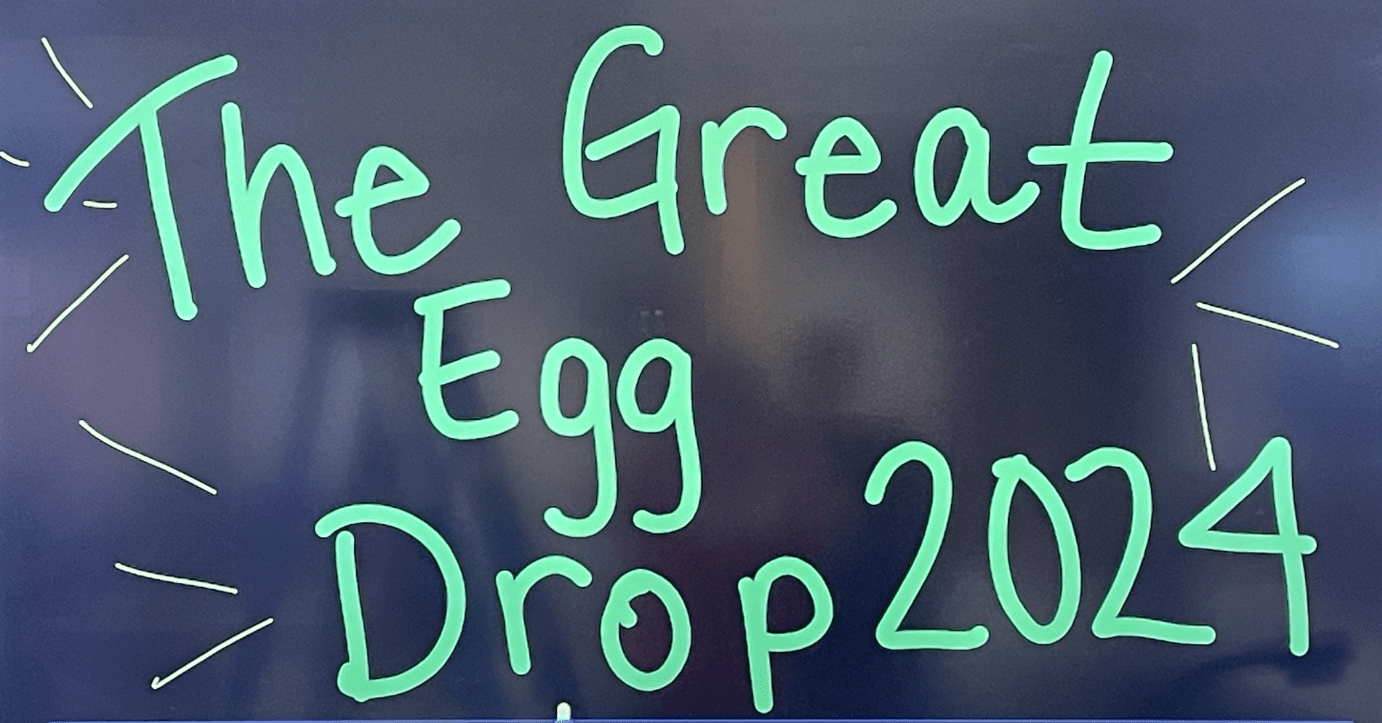 The Great
Egg
Drop 2024